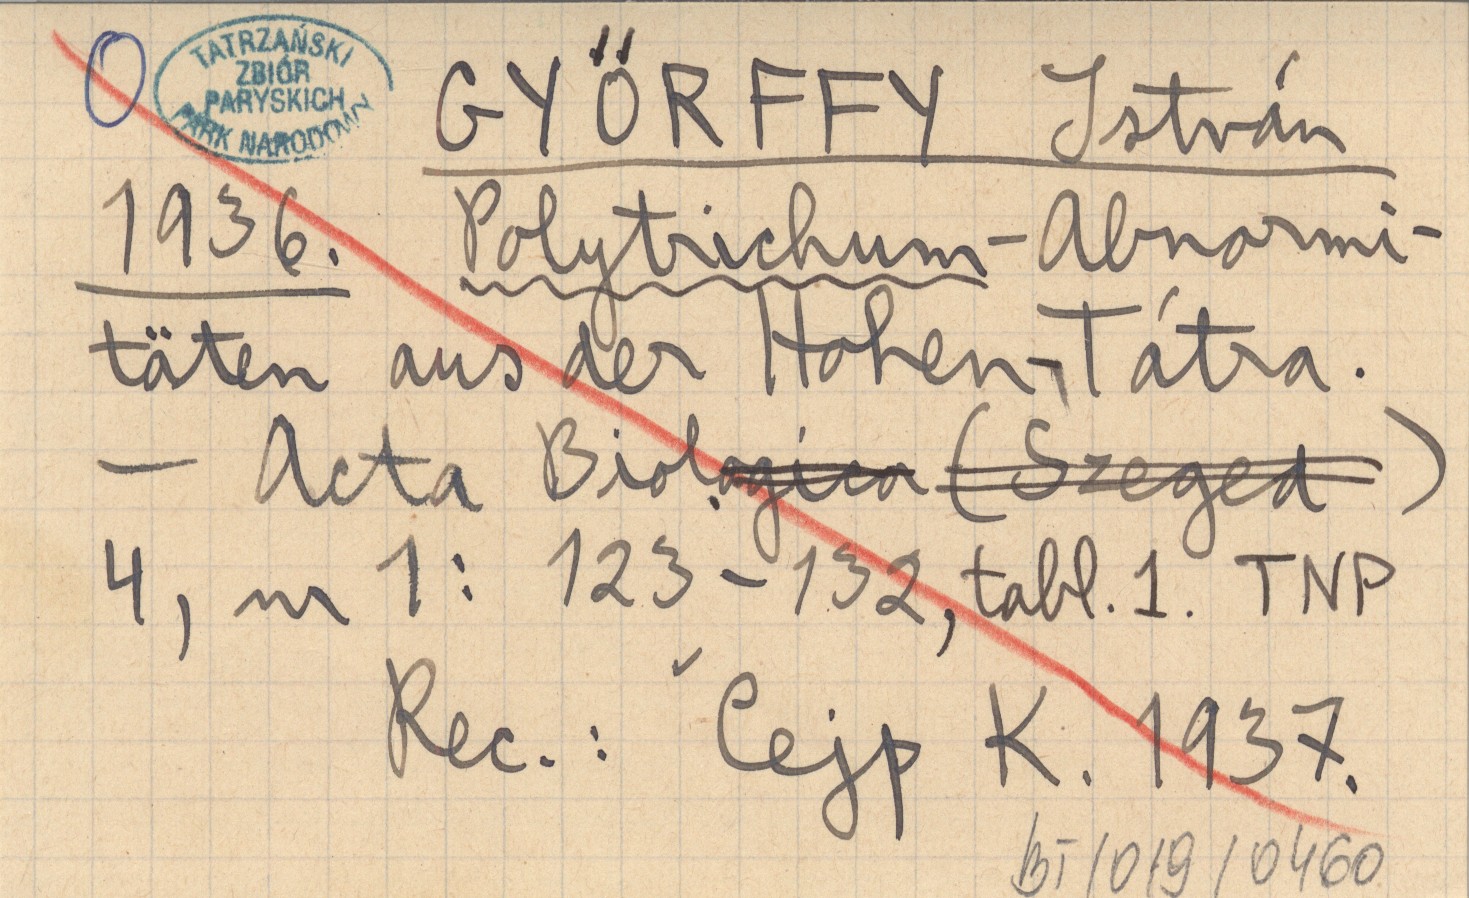 0
TATRZAŃSKI
ZBIÓR
PARYSKICH
PARK NARODOWY
GYŐRFFY István
1936. Polytrichum-Abnormi-
täten aus der Hohen-Tátra.
— Acta Biologica (Szeged)
4, nr 1: 123-132, tabl. 1. TNP
Rec.: Čejp K. 1937.
BT/019/0460